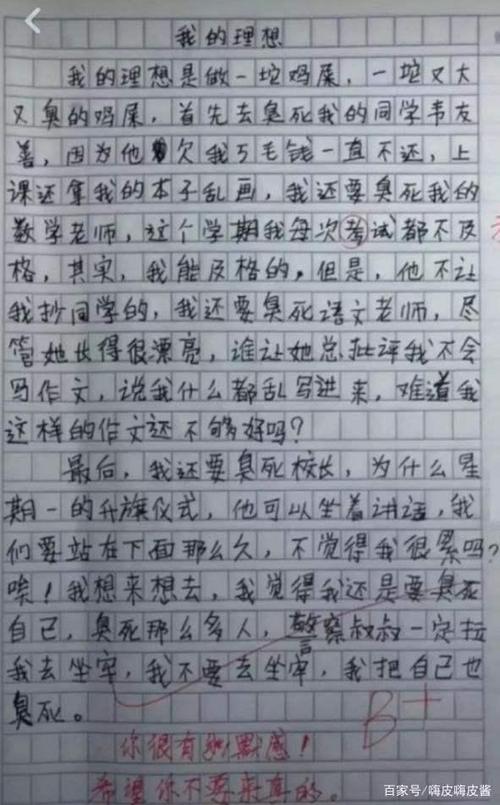 我的理想
我的理想是做一坨鸡屎，一坨又大
又臭的鸡屎，首先去臭死我的同学韦友
善，因为他欠我5毛钱一直不还，上
课还拿我的本子乱画，我还要臭死我的
数学老师，这个学期我每次考试都不及
格，其实，我能及格的，但是，他不让
我抄同学的，我还要臭死语文老师，尽
管她长得很漂亮，谁让她总批评我不会
写作文，说我什么都乱写进来，难道我
这样的作文还不够好吗？
最后，我还要臭死校长，为什么星
期一的升旗仪式，他可以坐着讲话，我
们要站在下面那么久，不觉得我很累吗？
唉！我想来想去，我觉得我还是要臭死
自己，臭死那么多人，警察叔叔一定拉
我去坐牢，我不要去坐牢，我把自己也
臭死。
B+
你很有幽默感！
希望你不要来真的。
百家号/嗨皮嗨皮酱